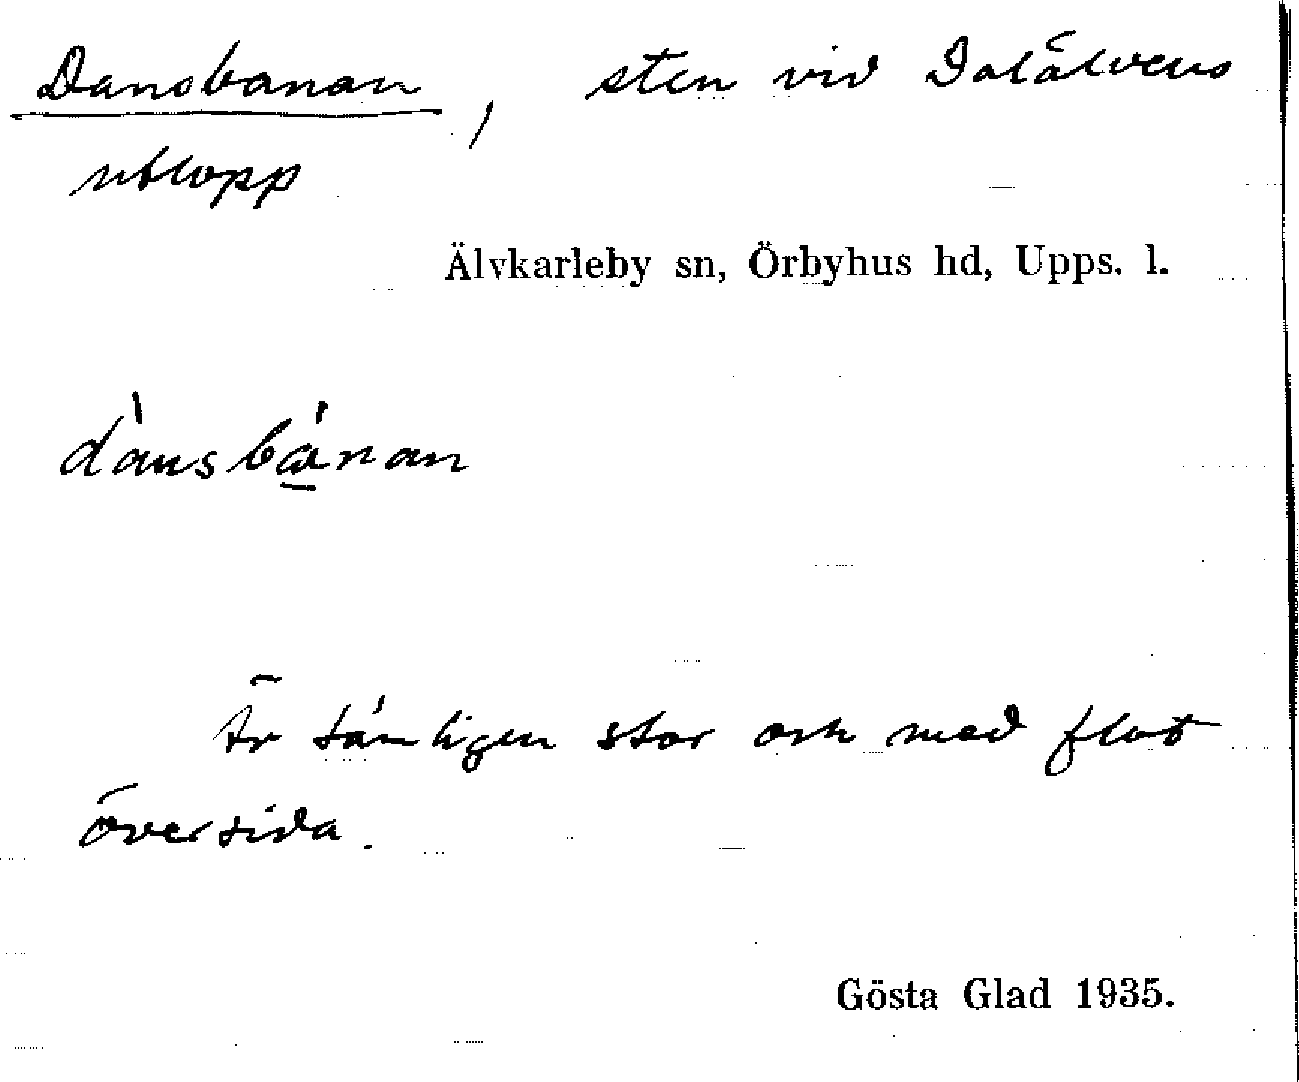 Dansbanan, sten vid Dalälvens
utlopp
Älvkarleby sn, Örbyhus hd, Upps. l.
dànsbànan
Är tämligen stor och med flat
översida.
Gösta Glad 1935.